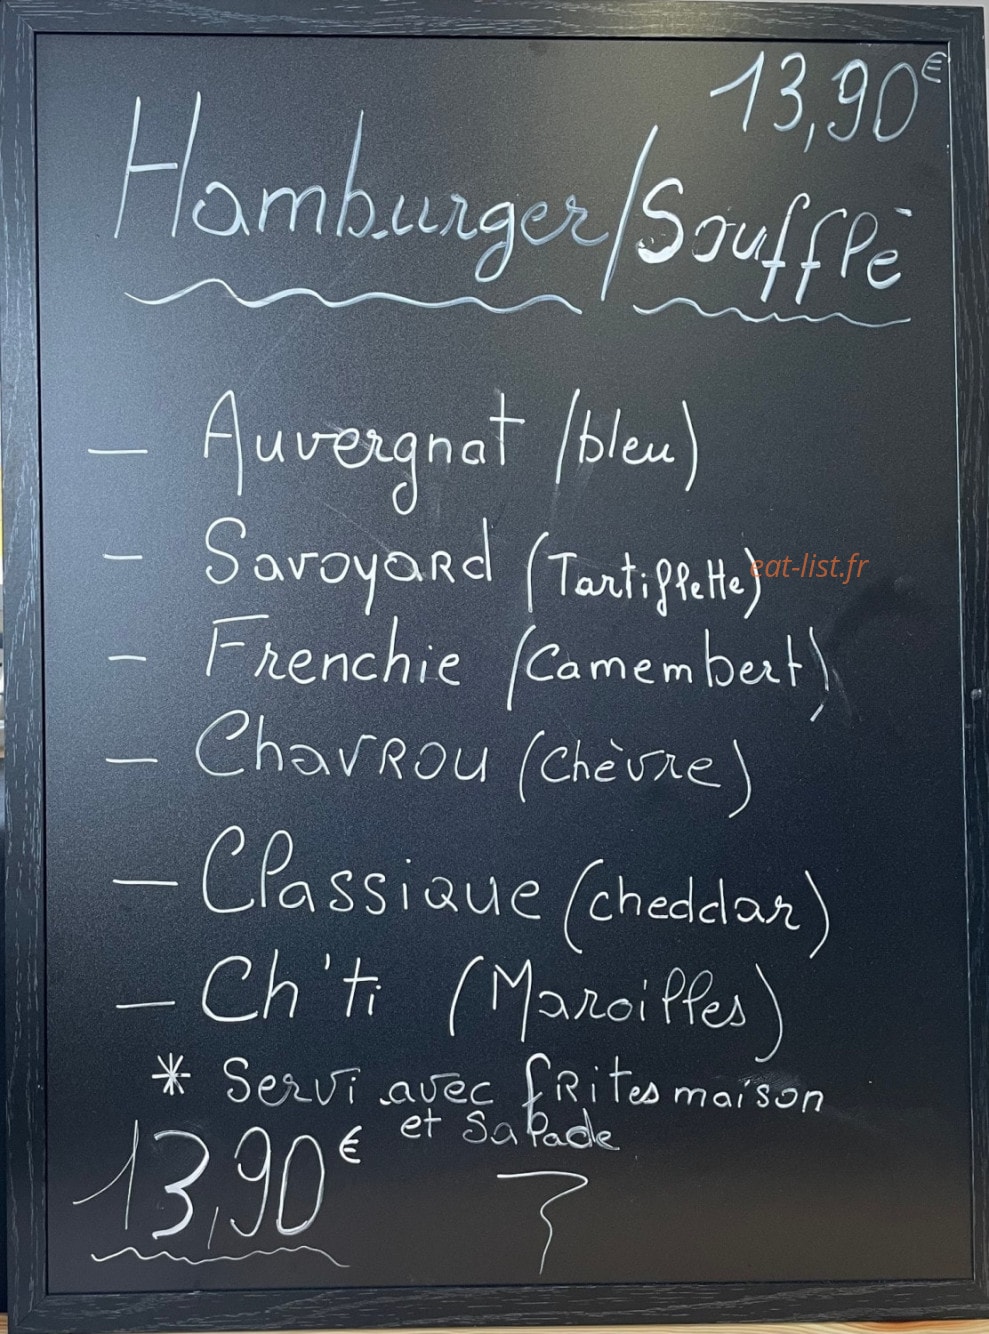 13,90€
Hamburger/Soufflé
— Auvergnat (bleu)
— Savoyard (Tartiflette)
eat-list.fr
— Frenchie (Camembert)
— Chavrou (chèvre)
— Classique (cheddar)
— Ch'ti (Maroilles)
* Servi avec frites maison
et Salade
13,90€